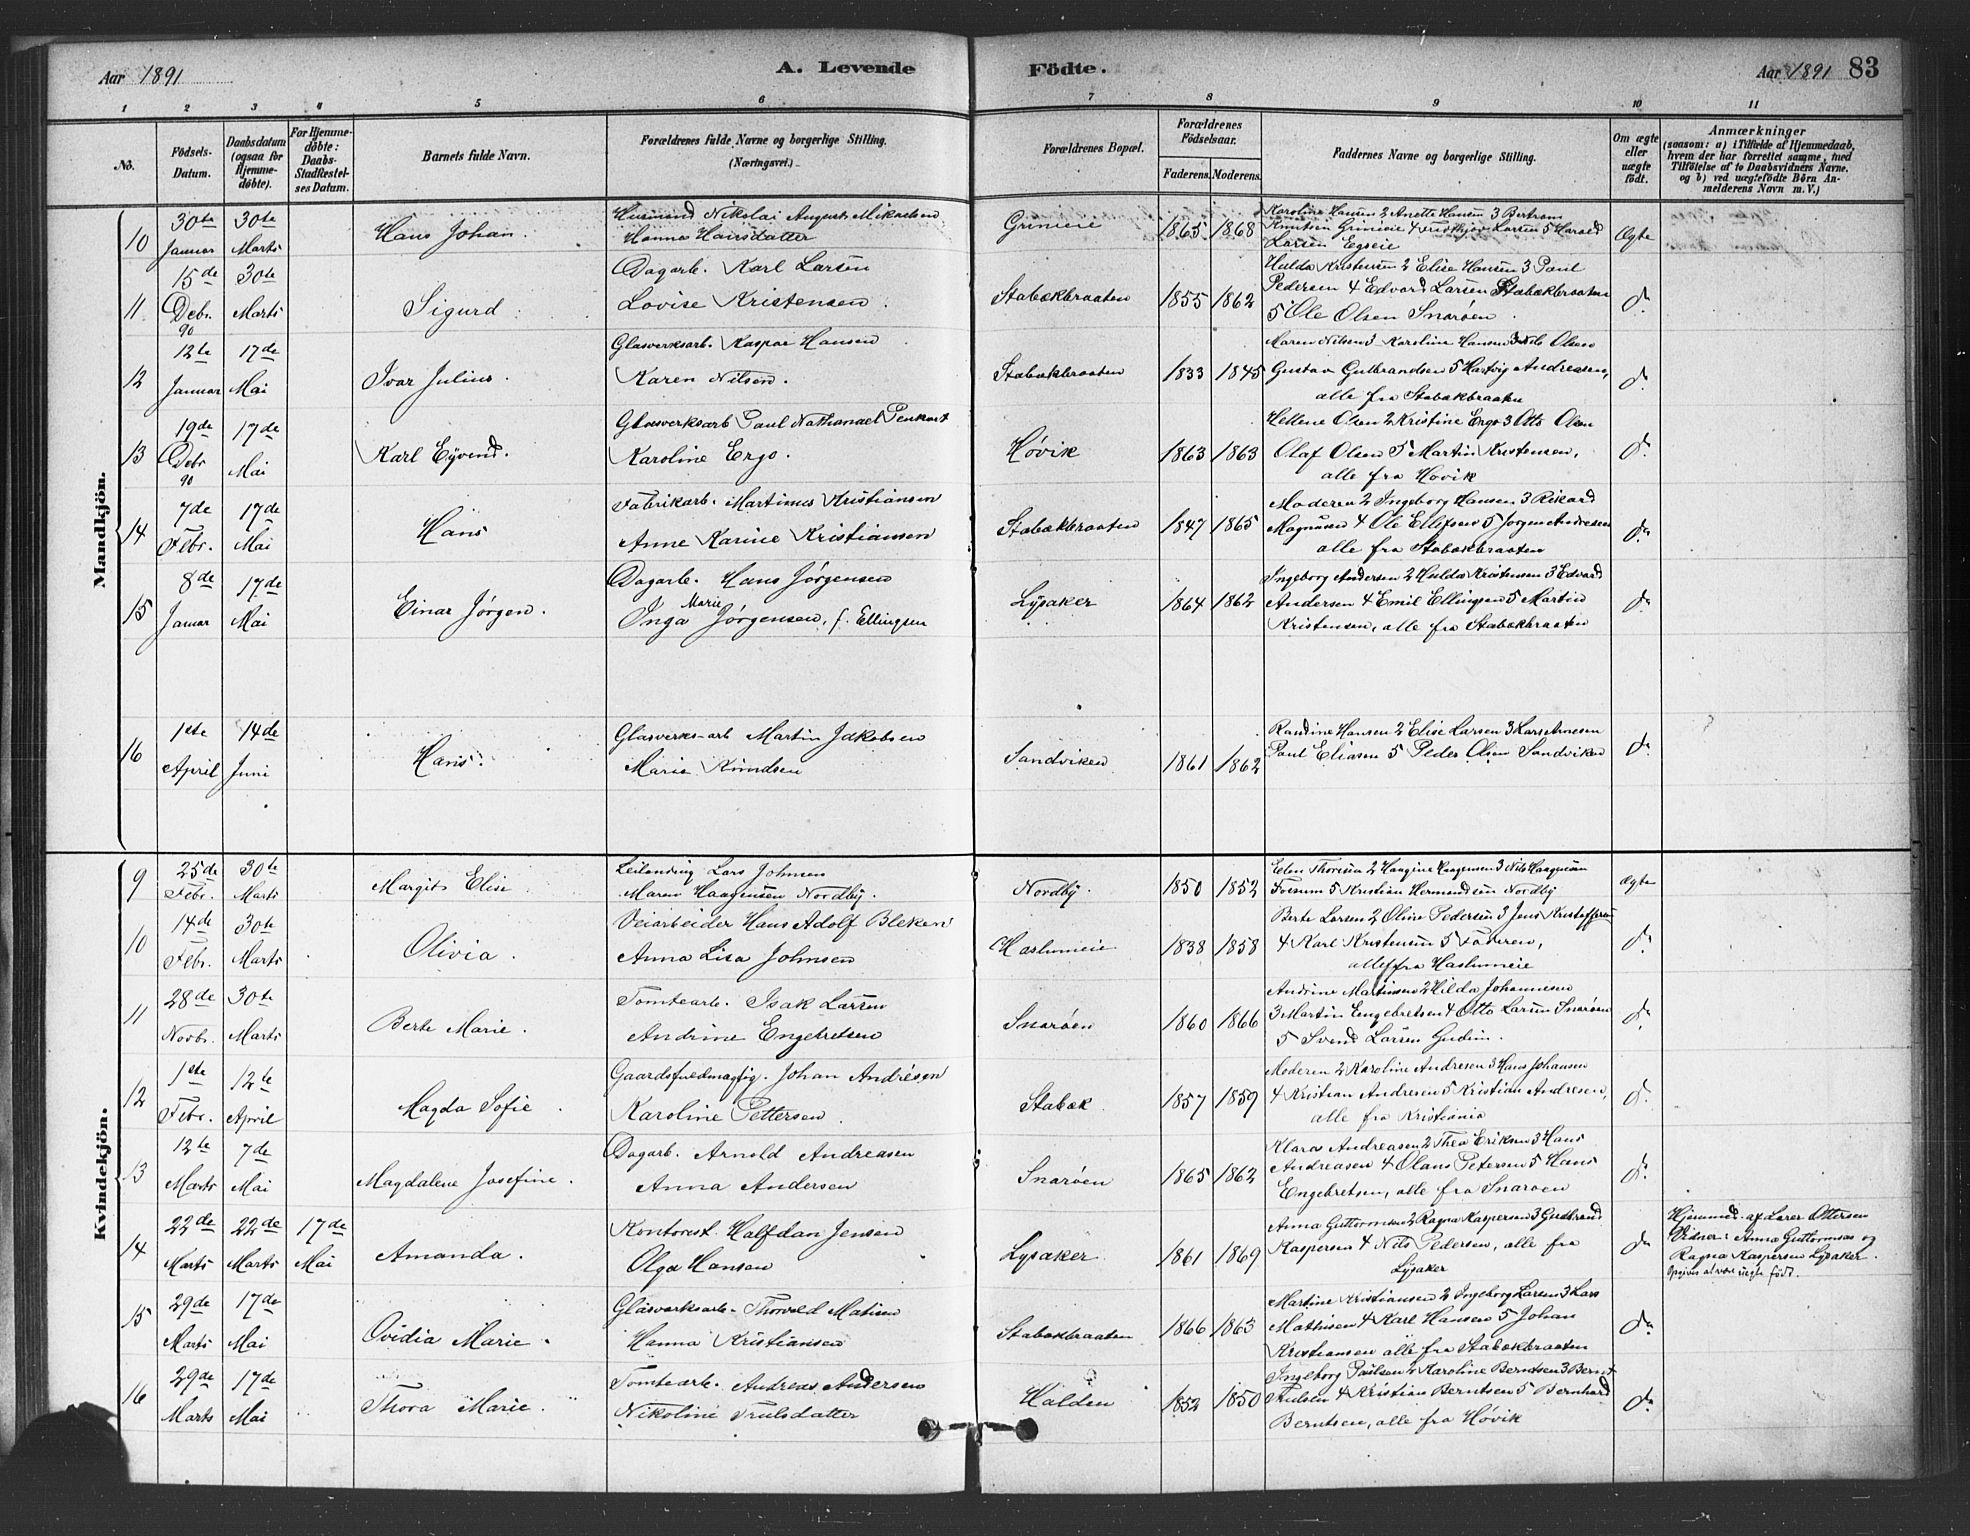 Aar 1891
A. Levende Födte.
Aar 1891 83
1 2 3 4 5 6 7 8 9 10 11
No.
Födsels-Datum.
Daabsdatum (ogsaa for Hjemme-döbte).
For Hjemme-döbte: Daabs-Stadfæstel-ses Datum.
Barnets fulde Navn.
Forældrenes fulde Navne og borgerlige Stilling. (Næringsvei.)
Forældrenes Bopæl.
Forældrenes Födselsaar.
Faderens. Moderens.
Faddernes Navne og borgerlige Stilling.
Om ægte eller uægte födt.
Anmærkninger
(saasom: a) i Tilfælde af Hjemmedaab, hvem der har forrettet samme, med Tilföielse af to Daabsvidners Navne. og b) ved uægtefödte Börn An-melderens Navn m. V.)
Mandkjön.
10 30te Januar 30te Marts Hans Johan. Husmand Nikolai August Mikaelsen
Hanna Hansdatter Grinieie 1865 1868 Karoline Hansen 2 Anette Hansen 3 Bertram
Knutsen Grinieie 4 Fridthjov Larsen 5 Harald
Larsen Egseie Ægte
11 15de Debr. 90 30te Marts Sigurd Dagarb. Karl Larsen
Lovise Kristensen Stabækbraaten 1855 1862 Hulda Kristensen 2 Elise Hansen 3 Paul
Pedersen 4 Edvard Larsen Stabækbraaten
5 Ole Olsen Snarøen do
12 12te Januar 17de Mai Ivar Julius. Glasverksarb. Kaspar Hansen
Karen Nilsen. Stabækbraaten 1833 1845 Maren Nilsen 2 Karoline Hansen 3 Nils Olsen
Gustav Gulbrandsen 5 Hartvig Andreasen,
alle fra Stabækbraaten do
13 19de Debr 90 17de Mai Karl Eyvend. Glasverksarb Paul Nathanael Penkart
Karoline Ergo. Høvik 1863 1863 Hellene Olsen 2 Kristine Ergo 3 Otto Olsen
Olaf Olsen 5 Martin Kristensen,
alle fra Høvik do
14 7de Febr. 17de Mai Hans Fabrikarb. Martinus Kristiansen
Anne Karine Kristiansen Stabækbraaten 1847 1865 Moderen 2 Ingeborg Hansen 3 Rikard
Magnusen 4 Ole Ellefsen 5 Jørgen Andresen
alle fra Stabækbraaten do
15 8de Januar 17de Mai Einar Jørgen. Dagarb. Hans Jørgensen
Inga Marie Jørgensen, f. Ellingsen Lysaker 1864 1862 Ingeborg Andersen 2 Hulda Kristensen 3 Edvard
Andersen 4 Emil Ellingsen 5 Martin
Kristensen, alle fra Stabækbraaten do
16 1ste April 14de Juni Hans. Glasverks-arb Martin Jakobsen
Marie Knudsen Sandviken 1861 1862 Randine Hansen 2 Elise Larsen 3 Lars Arnesen
Paul Eliasen 5 Peder Olsen Sandviken do
Kvindekjön.
9 25de Febr. 30te Marts Margit Elise Leilending Lars Johnsen
Maren Haagensen Nordby. Nordby 1850 1852 Eden Thoresen 2 Haagine Haagensen 3 Nils Haagensen
Fossum 5 Kristian Hermandsen Nordby ægte
10 14de Febr. 30te Marts Olivia. Veiarbeider Hans Adolf Bleken
Anna Lisa Johnsen Haslumeie 1838 1858 Berte Larsen 2 Oline Pedersen 3 Jens Kristoffersen
4 Karl Kristensen 5 Faderen,
alle fra Haslumeie do
11 28de Novbr. 30te Marts Berte Marie. Tomtearb. Isak Larsen
Andrine Engebretsen Snarøen 1860 1866 Andrine Martinsen 2 Hilda Johannesen
3 Martin Engebretsen 4 Otto Larsen Snarøen
5 Svend Larsen Gudim. do
12 1ste Febr. 12te April Magda Sofie Gaardsfuldmægtig. Johan Andrésen
Karoline Pettersen Stabæk 1857 1859 Moderen 2 Karoline Andresen 3 Hans Johansen
4 Kristian Andresen 5 Kristian Andresen,
alle fra Kristiania do
13 12te Marts 7de Mai Magdalene Josefine. Dagarb. Arnold Andreasen
Anna Andersen Snarøen 1865 1862 Klara Andreasen 2 Thea Eriksen 3 Hans
Andreasen 4 Olans Petersen 5 Hans
Engebretsen, alle fra Snarøen do
14 22de Marts 22de Marts 17de Mai Amanda. Kontorist. Halfdan Jensen
Olga Hansen Lysaker. 1861 1869 Anna Guttormsen 2 Ragna Kaspersen 3 Gudbrand
Kaspersen 4 Nils Pedersen, alle fra
Lysaker do Hjemmed. af Lærer Ottersen
Vidner: Anna Guttormsen og
Ragna Kaspersen Lysaker.
Opgives at være uegte født.
15 29de Marts 17de Mai Ovidia Marie. Glasverksarb. Thorvald Matisen
Hanna Kristiansen Stabækbraaten 1866 1863 Martine Kristiansen 2 Ingeborg Larsen 3 Lars
Mathisen 4 Karl Hansen 5 Johan
Kristiansen alle fra Stabækbraaten do
16 29de Marts 17de Mai Thora Marie. Tomtearb. Andreas Andersen
Nikoline Trulsdatter Halden 1852 1850 Ingeborg Paulsen 2 Karoline Berntsen 3 Bernt
Trulsen 4 Kristian Berntsen 5 Bernhard
Berntsen, alle fra Høvik do